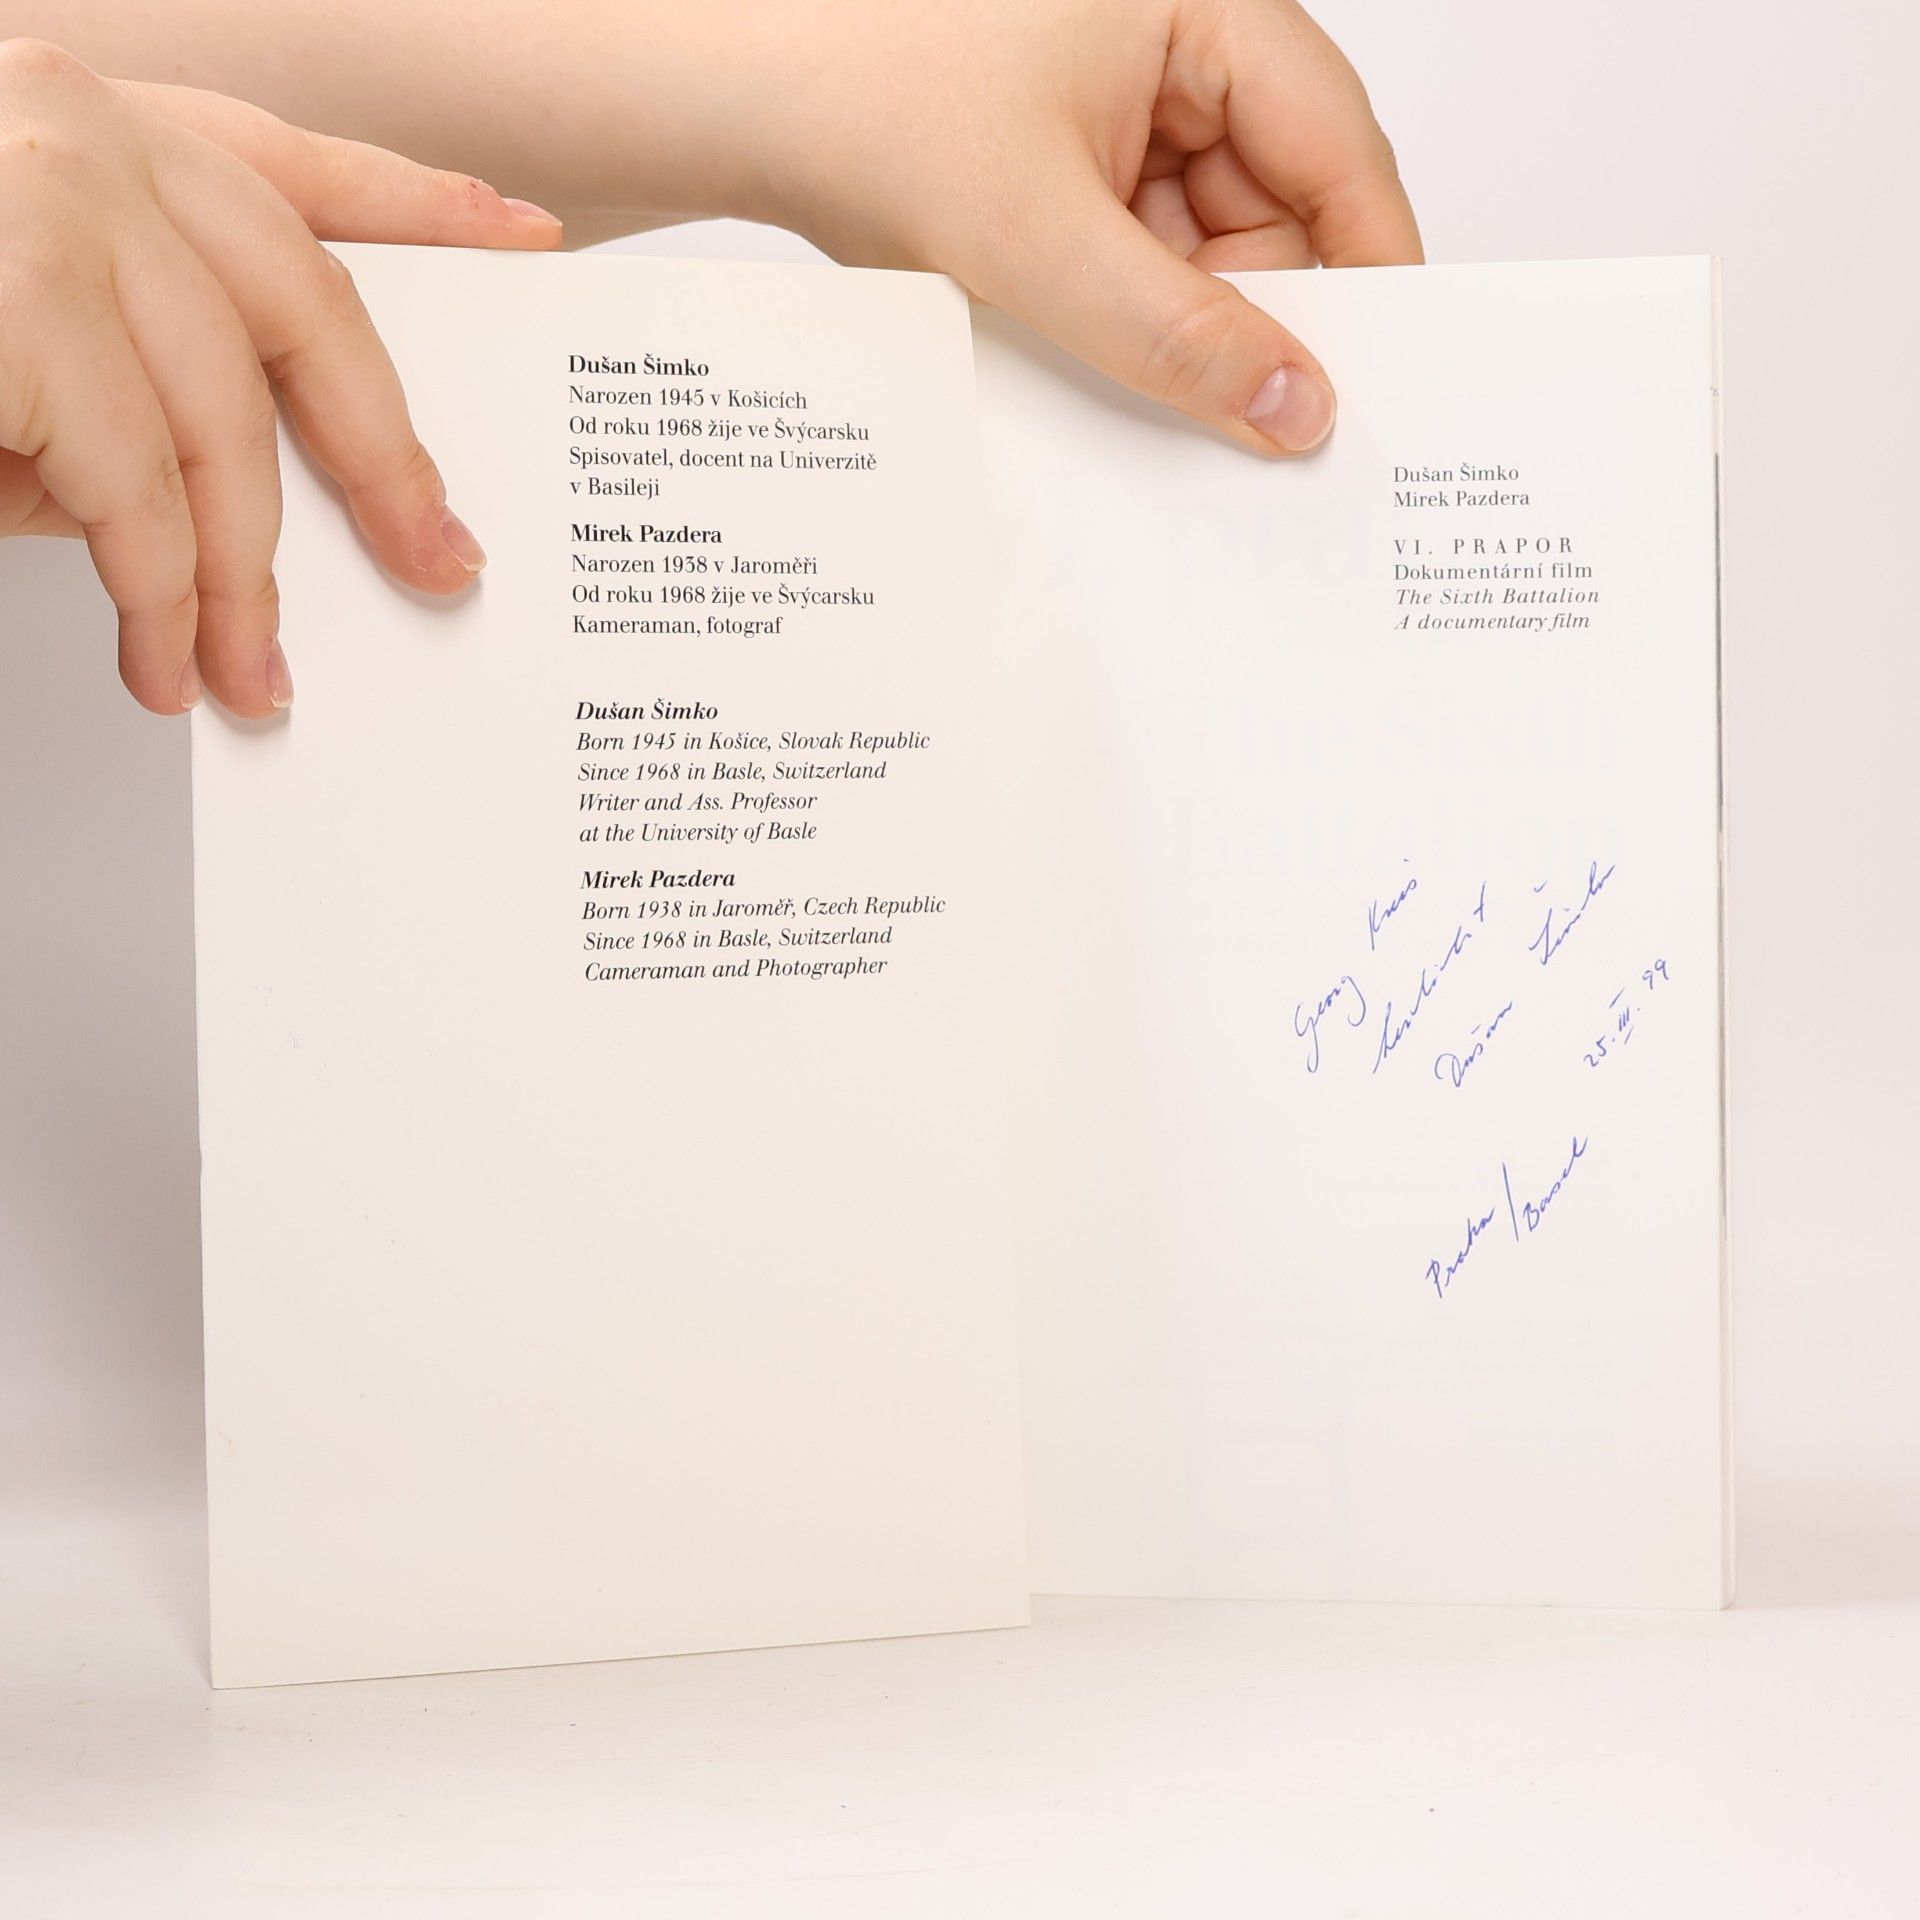 Dušan Šimko
Narozen 1945 v Košicích
Od roku 1968 žije ve Švýcarsku
Spisovatel, docent na Univerzitě
v Basileji
Mirek Pazdera
Narozen 1938 v Jaroměři
Od roku 1968 žije ve Švýcarsku
Kameraman, fotograf
Dušan Šimko
Born 1945 in Košice, Slovak Republic
Since 1968 in Basle, Switzerland
Writer and Ass. Professor
at the University of Basle
Mirek Pazdera
Born 1938 in Jaroměř, Czech Republic
Since 1968 in Basle, Switzerland
Cameraman and Photographer
Dušan Šimko
Mirek Pazdera
VI. PRAPOR
Dokumentární film
The Sixth Battalion
A documentary film
Georg Kreis
Dušan Šimko
25. III. 99
Praha/Basel